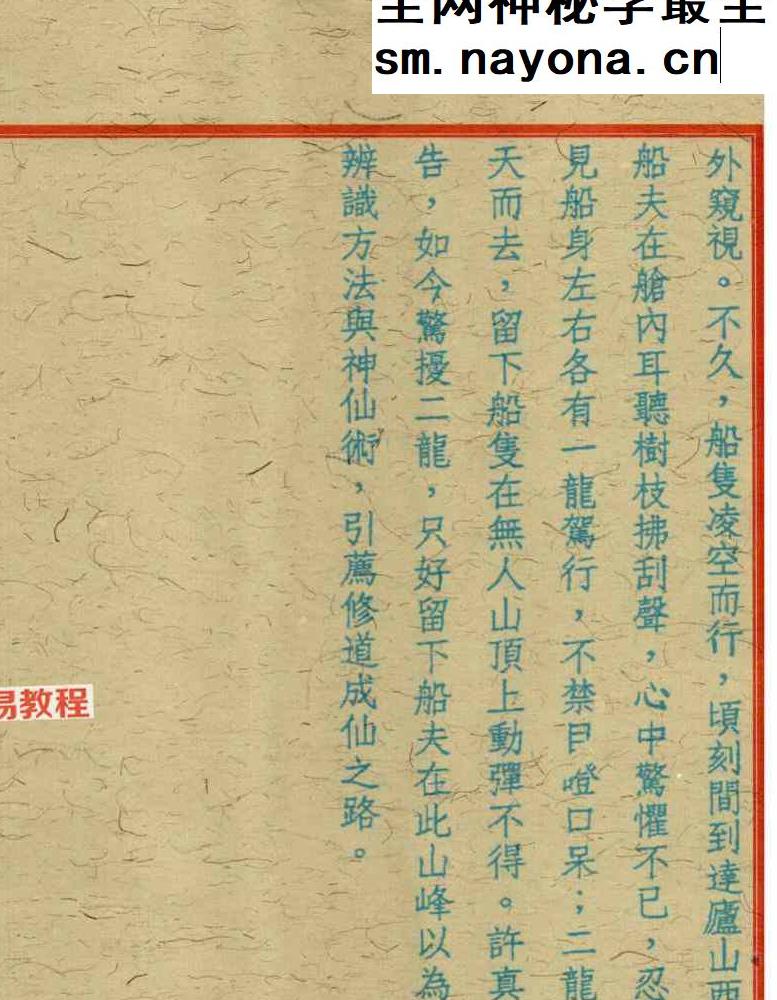 sm.nayona.cn
外窺視。不久，船隻凌空而行，頃刻間到達廬山
船夫在艙內耳聽樹枝拂刮聲，心中驚懼不已，忍
見船身左右各有一龍駕行，不禁目噔口呆；二龍
天而去，留下船隻在無人山頂上動彈不得。許真
告，如今驚擾二龍，只好留下船夫在此山峰以為
辨識方法與神仙術，引薦修道成仙之路。
易教程